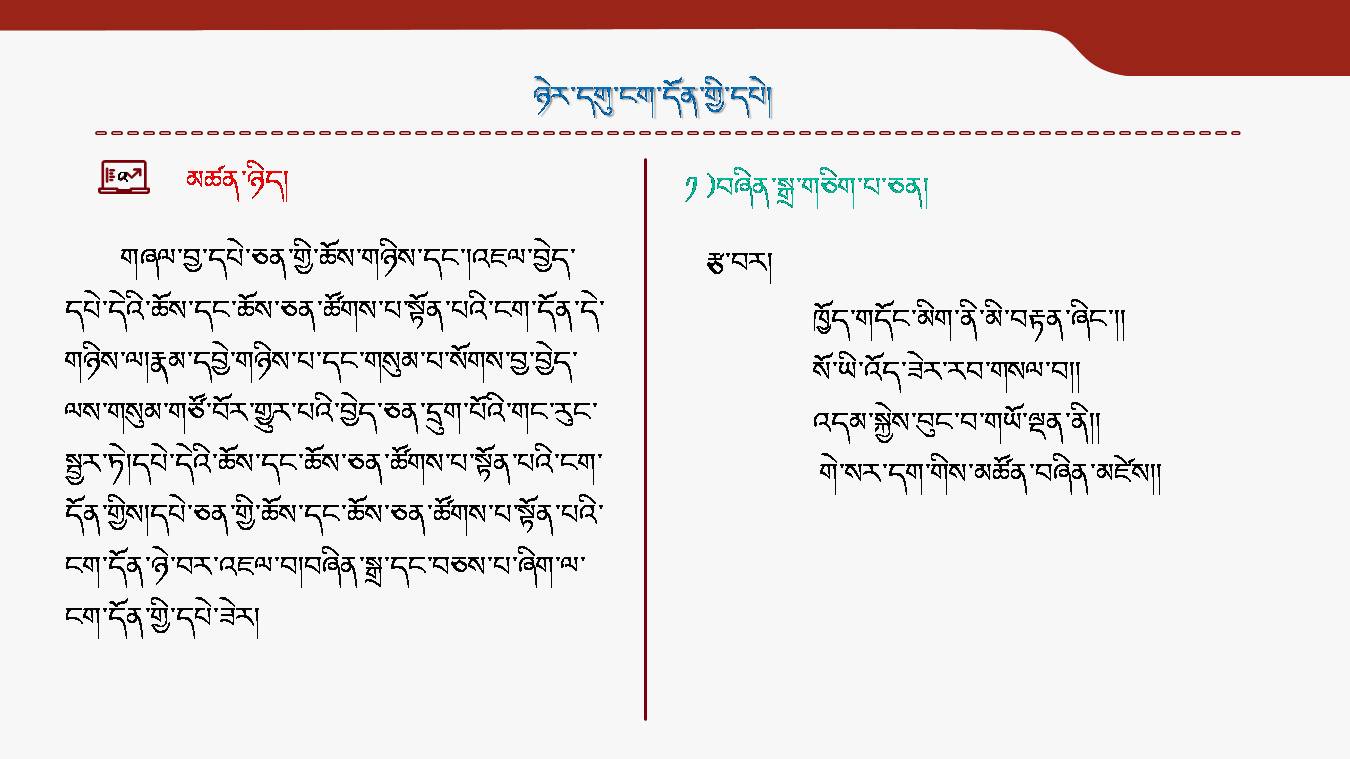 ཉེར་དགུ་ངག་དོན་གྱི་དཔེ།
མཚན་ཉིད།
གཞལ་བྱ་དཔེ་ཅན་གྱི་ཆོས་གཉིས་དང་།འཇལ་བྱེད་
དཔེ་དེའི་ཆོས་དང་ཆོས་ཅན་ཚོགས་པ་སྟོན་པའི་ངག་དོན་དེ་
གཉིས་ལ།རྣམ་དབྱེ་གཉིས་པ་དང་གསུམ་པ་སོགས་བྱ་བྱེད་
ལས་གསུམ་གཙོ་བོར་གྱུར་པའི་བྱེད་ཅན་དྲུག་པོའི་གང་རུང་
སྦྱར་ཏེ།དཔེ་དེའི་ཆོས་དང་ཆོས་ཅན་ཚོགས་པ་སྟོན་པའི་ངག་
དོན་གྱིས།དཔེ་ཅན་གྱི་ཆོས་དང་ཆོས་ཅན་ཚོགས་པ་སྟོན་པའི་
ངག་དོན་ཉེ་བར་འཇལ་བ།བཞིན་སྒྲ་དང་བཅས་པ་ཞིག་ལ་
ངག་དོན་གྱི་དཔེ་ཟེར།
༡ )བཞིན་སྒྲ་གཅིག་པ་ཅན།
རྩ་བར།
ཁྱོད་གདོང་མིག་ནི་མི་བརྟན་ཞིང་།།
སོ་ཡི་འོད་ཟེར་རབ་གསལ་བ།།
འདམ་སྐྱེས་བུང་བ་གཡོ་ལྡན་ནི།།
གེ་སར་དག་གིས་མཚོན་བཞིན་མཛེས།།